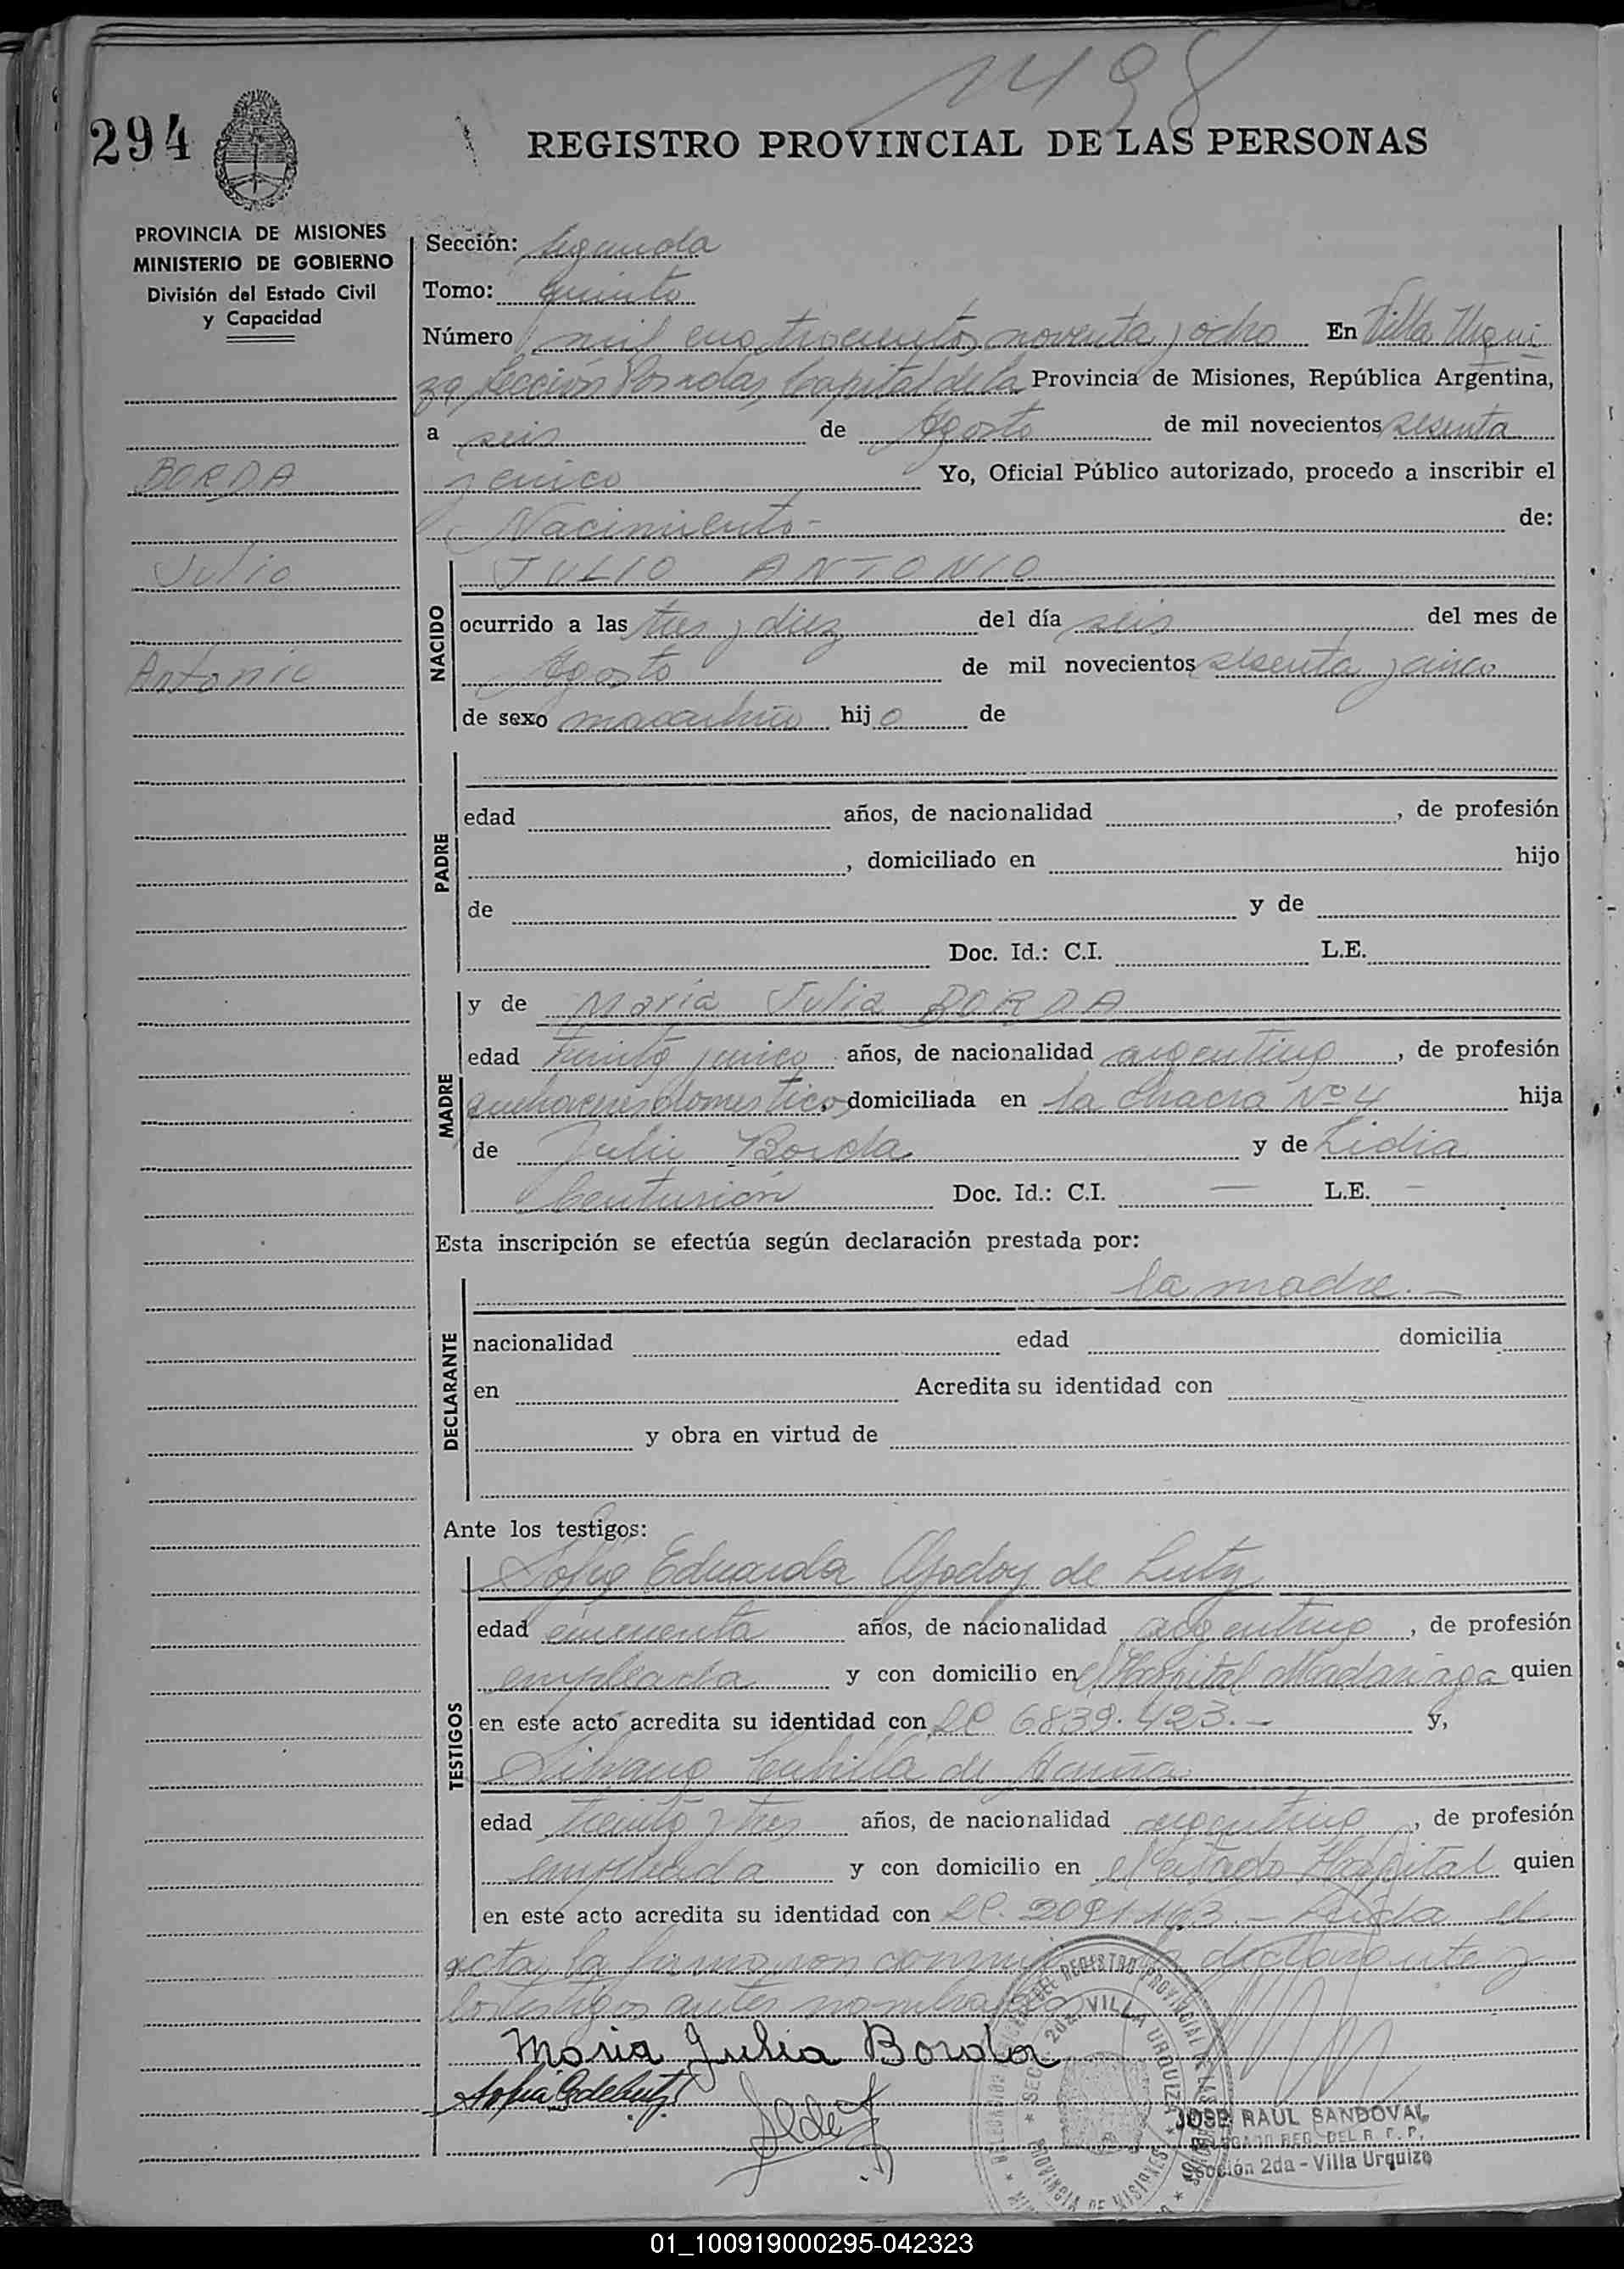 1498
294
REGISTRO PROVINCIAL DE LAS PERSONAS
PROVINCIA DE MISIONES
MINISTERIO DE GOBIERNO
División del Estado Civil
y Capacidad
BORDA
Julio
Antonio
Sección: Segunda
Tomo: quinto
Número mil cuatrocientos noventa y ocho En Villa Urqui
za, Sección Posadas, Capital de la Provincia de Misiones, República Argentina,
a seis de Agosto de mil novecientos sesenta
y cinco Yo, Oficial Público autorizado, procedo a inscribir el
Nacimiento- de:
NACIDO
JULIO ANTONIO
ocurrido a las tres y diez del día seis del mes de
Agosto de mil novecientos sesenta y cinco
de sexo masculino hijo de
PADRE
edad años, de nacionalidad , de profesión
, domiciliado en hijo
de y de
Doc. Id.: C.I. L.E.
MADRE
y de Maria Julia BORDA
edad treinta y cinco años, de nacionalidad argentina, de profesión
quehaceres domesticos domiciliada en la Chacra Nº 4 hija
de Julio Borda y de Lidia
Centurión Doc. Id.: C.I. — L.E. —
Esta inscripción se efectúa según declaración prestada por:
DECLARANTE
la madre.—
nacionalidad edad domicilia
en Acredita su identidad con
y obra en virtud de
Ante los testigos:
TESTIGOS
Sofia Eduarda Godoy de Lutz
edad cincuenta años, de nacionalidad argentina, de profesión
empleada y con domicilio en el Hospital Madariaga quien
en este acto acredita su identidad con LC 6839.423.— y,
de
edad treinta y tres años, de nacionalidad argentina, de profesión
empleada y con domicilio en el citado Hospital quien
en este acto acredita su identidad con LC. — Leída el
acta, la firmaron conmigo la declarante y
los testigos antes nombrados
Maria Julia Borda
Sofia G de Lutz
REGISTRO PROVINCIAL DE LAS
SEC. 2da. VILLA URQUIZA
PROVINCIA DE MISIONES
JOSE RAUL SANDOVAL
DEL R. P. P.
Sección 2da - Villa Urquiza
01_100919000295-042323